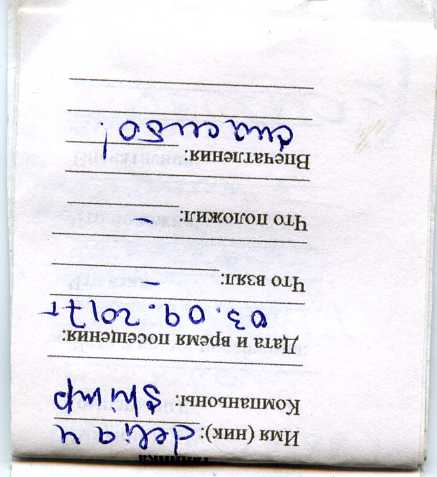 Имя (ник):
Компаньоны: Shimp
Дата и время посещения:
03.09.2017г
Что взял: –
Что положил: –
Впечатления:
Спасибо!